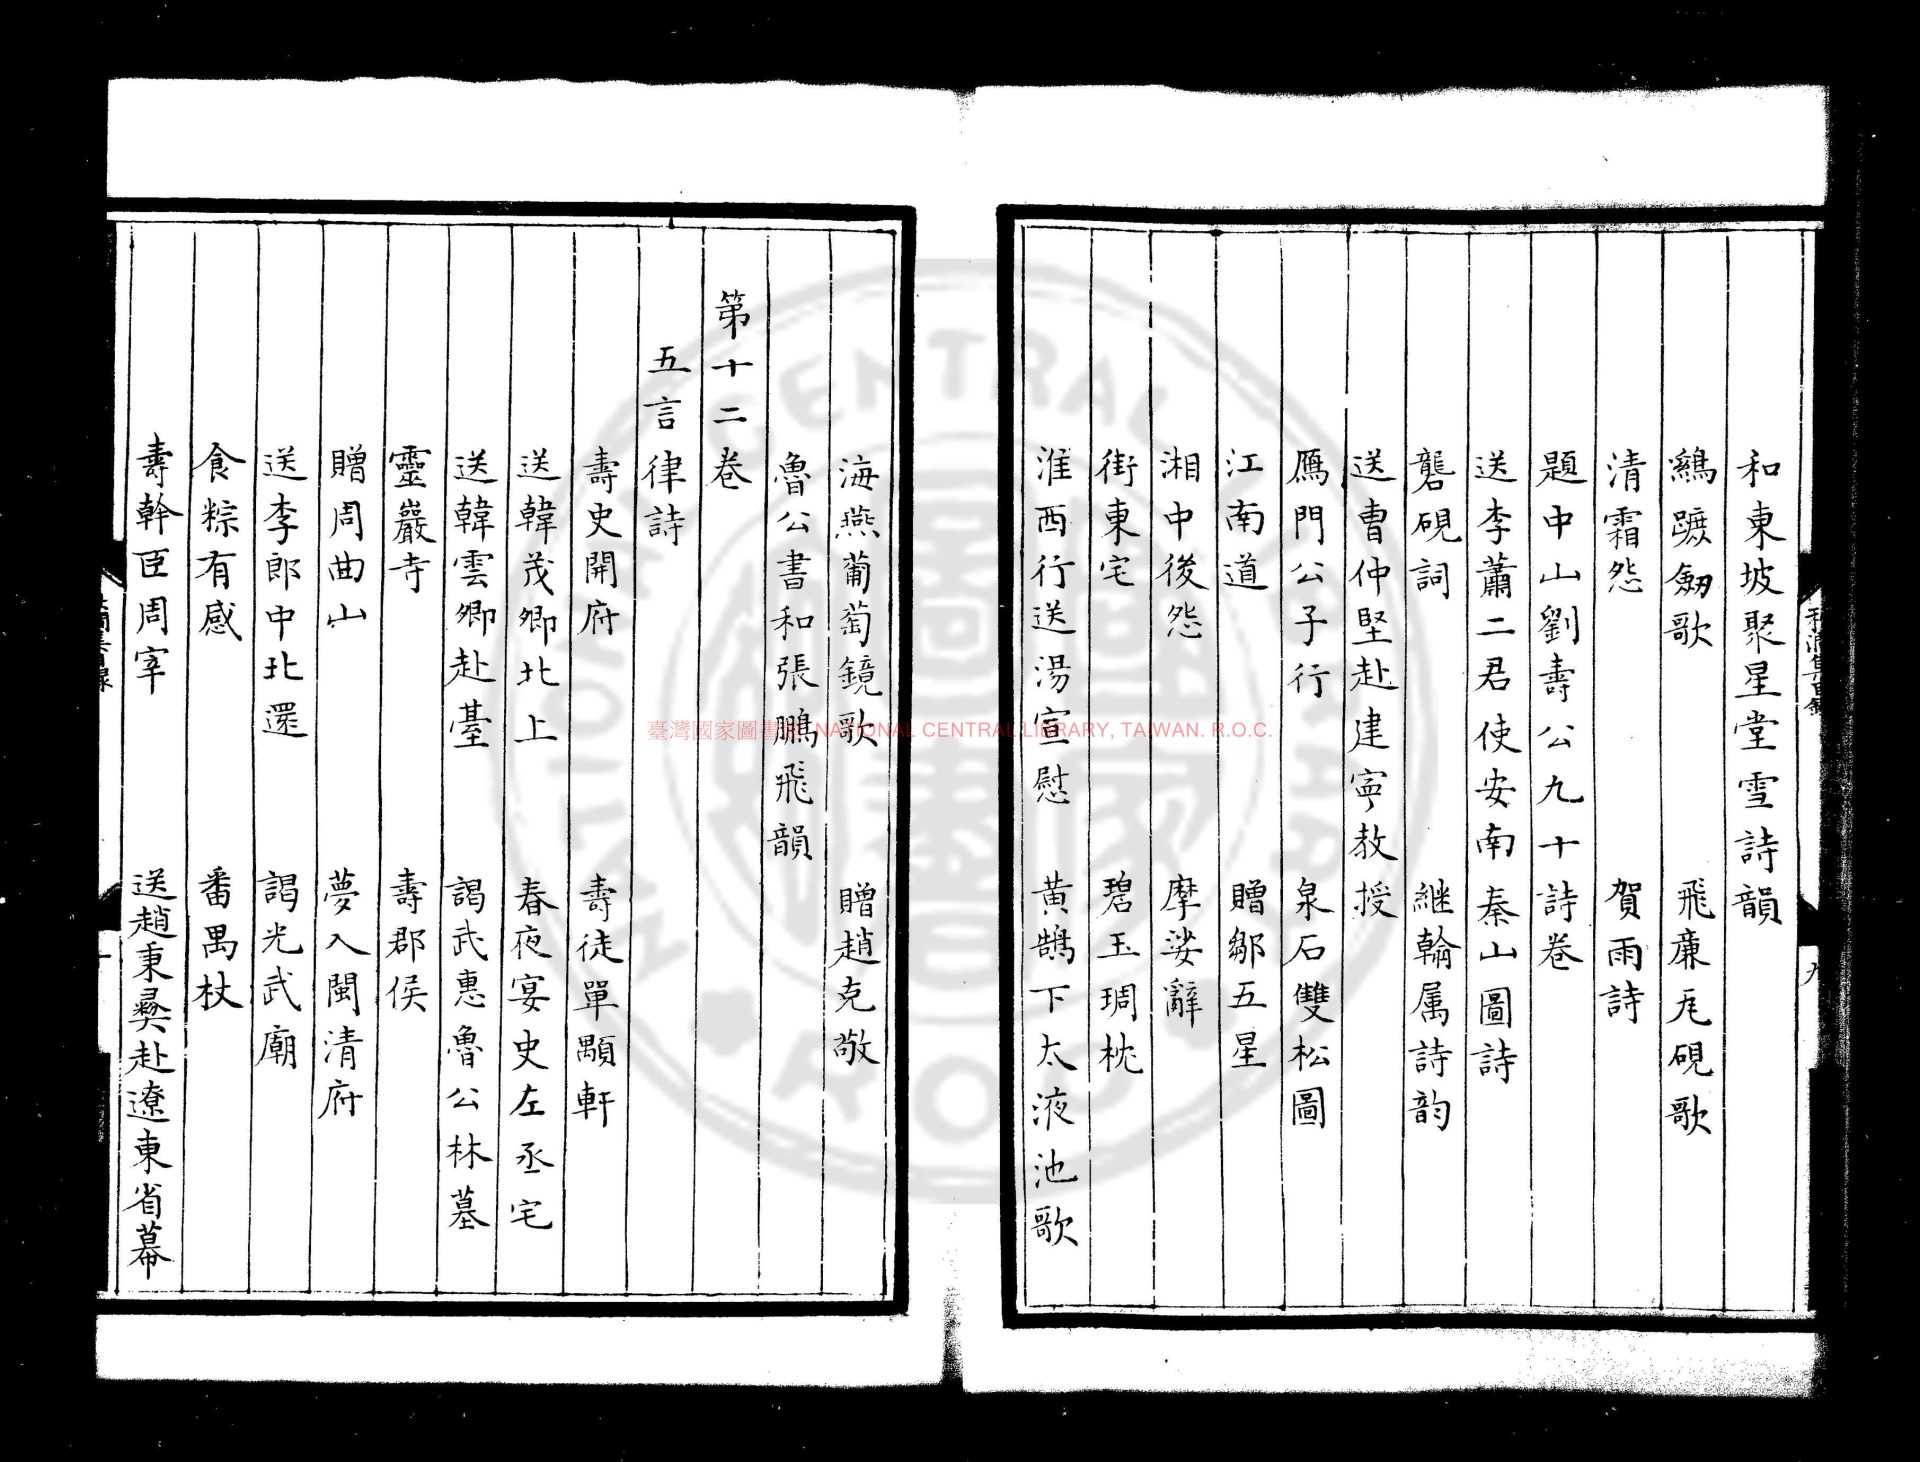 和東坡聚星堂雪詩韻
鷞蹶劒歌　飛廉瓦硯歌
清霜怨　賀雨詩
題中山劉壽公九十詩卷
送李蕭二君使安南　秦山圖詩
礱硯詞　継翰属詩韵
送曹仲堅赴建寧教授
鴈門公子行　泉石雙松圖
江南道　贈鄒五星
湘中後怨　摩娑辭
街東宅　碧玉琱枕
淮西行送湯宣慰　黄鵠下太液池歌
海燕葡萄鏡歌　贈趙克敬
魯公書和張鵬飛韻
第十二卷
五言律詩
壽史開府　壽徒單顒軒
送韓茂卿北上　春夜宴史左丞宅
送韓雲卿赴臺　謁武惠魯公林墓
靈巖寺　壽郡侯
贈周曲山　夢入閩清府
送李郎中北還　謁光武廟
食粽有感　番禺杖
壽幹臣周宰　送趙秉彝赴遼東省幕
臺灣國家圖書館 NATIONAL CENTRAL LIBRARY, TAIWAN. R.O.C.